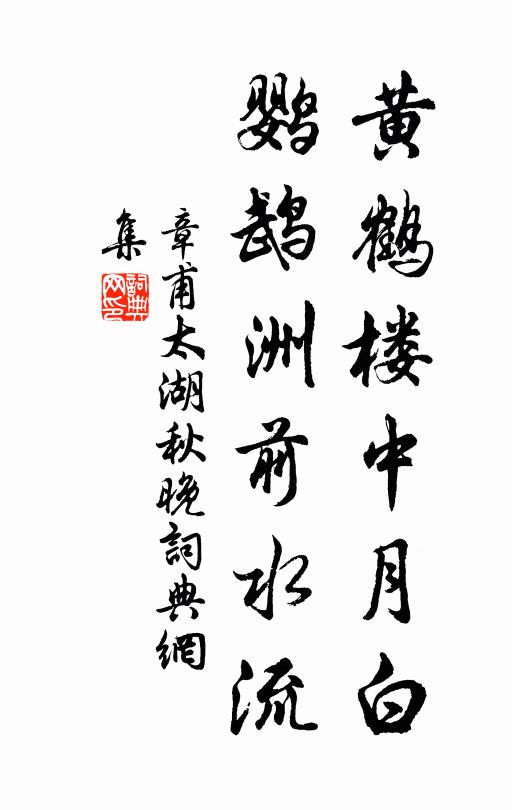 黄鹤楼中月白
鹦鹉洲前水流
章甫太湖秋晚詞典網
集
詞典
网印